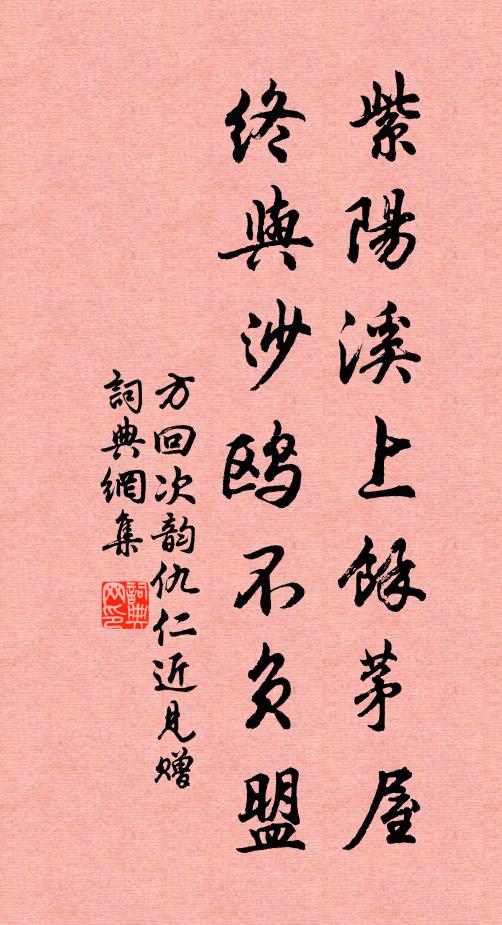 紫陽溪上餘茅屋
終與沙鷗不負盟
方回次韵仇仁近見贈
詞典網集
詞典网印